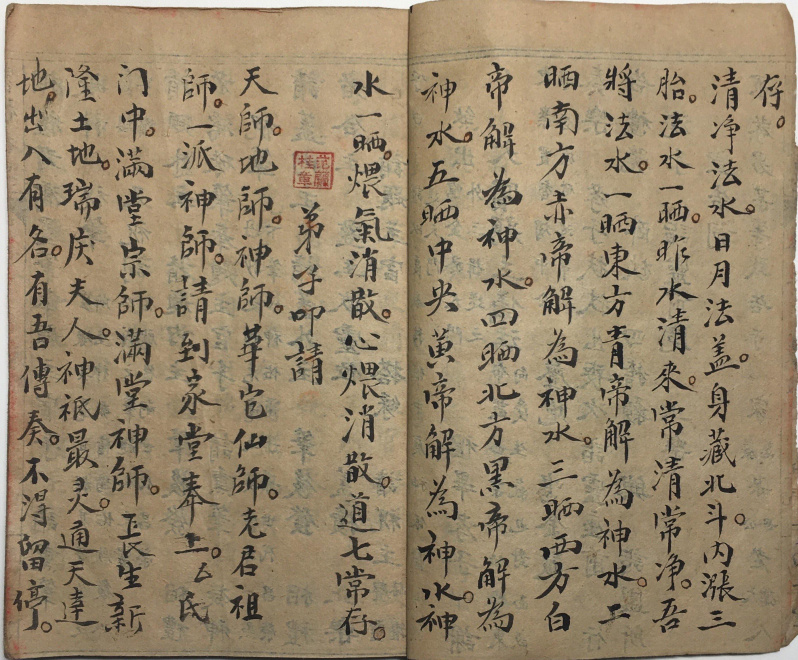 存。
清净法水。日月法盖。身藏北斗内漲三
胎。法水一晒。昨水清来。常清常净。吾
將法水。一晒東方青帝解為神水。二
晒南方赤帝解為神水。三晒西方白
帝解為神水。四晒北方黑帝解為
神水。五晒中央黄帝解為神水。神
水一晒。煨氣消散。心煨消散。道七常存。
弟子叩請
天師。地師。神師。華它仙師。老君祖
師。一派神師。請到家堂奉上。厶氏
门中。滿堂宗師。滿堂神師。長生新
隆土地。瑞庆夫人。神祗最灵。通天達
地。出入有各。有吾傳奏。不得留停。